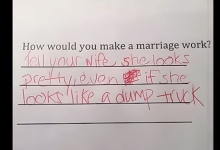 How would you make a marriage work?
Tell your wife, she looks
pretty, even if she
looks like a dump truck